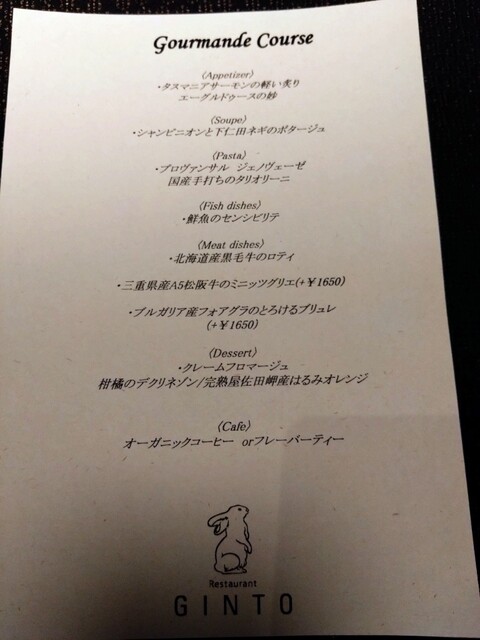 Gourmande Course
〈Appetizer〉
・タスマニアサーモンの軽い炙り
エーグルドゥースの妙
〈Soupe〉
・シャンピニオンと下仁田ネギのポタージュ
〈Pasta〉
・プロヴァンサル ジェノヴェーゼ
国産手打ちのタリオリーニ
〈Fish dishes〉
・鮮魚のセンシビリテ
〈Meat dishes〉
・北海道産黒毛牛のロティ
・三重県産A5松阪牛のミニッツグリエ(+￥1650)
・ブルガリア産フォアグラのとろけるブリュレ
(+￥1650)
〈Dessert〉
・クレームフロマージュ
柑橘のデクリネゾン/完熟屋佐田岬産はるみオレンジ
〈Cafe〉
オーガニックコーヒー orフレーバーティー
Restaurant
GINTO